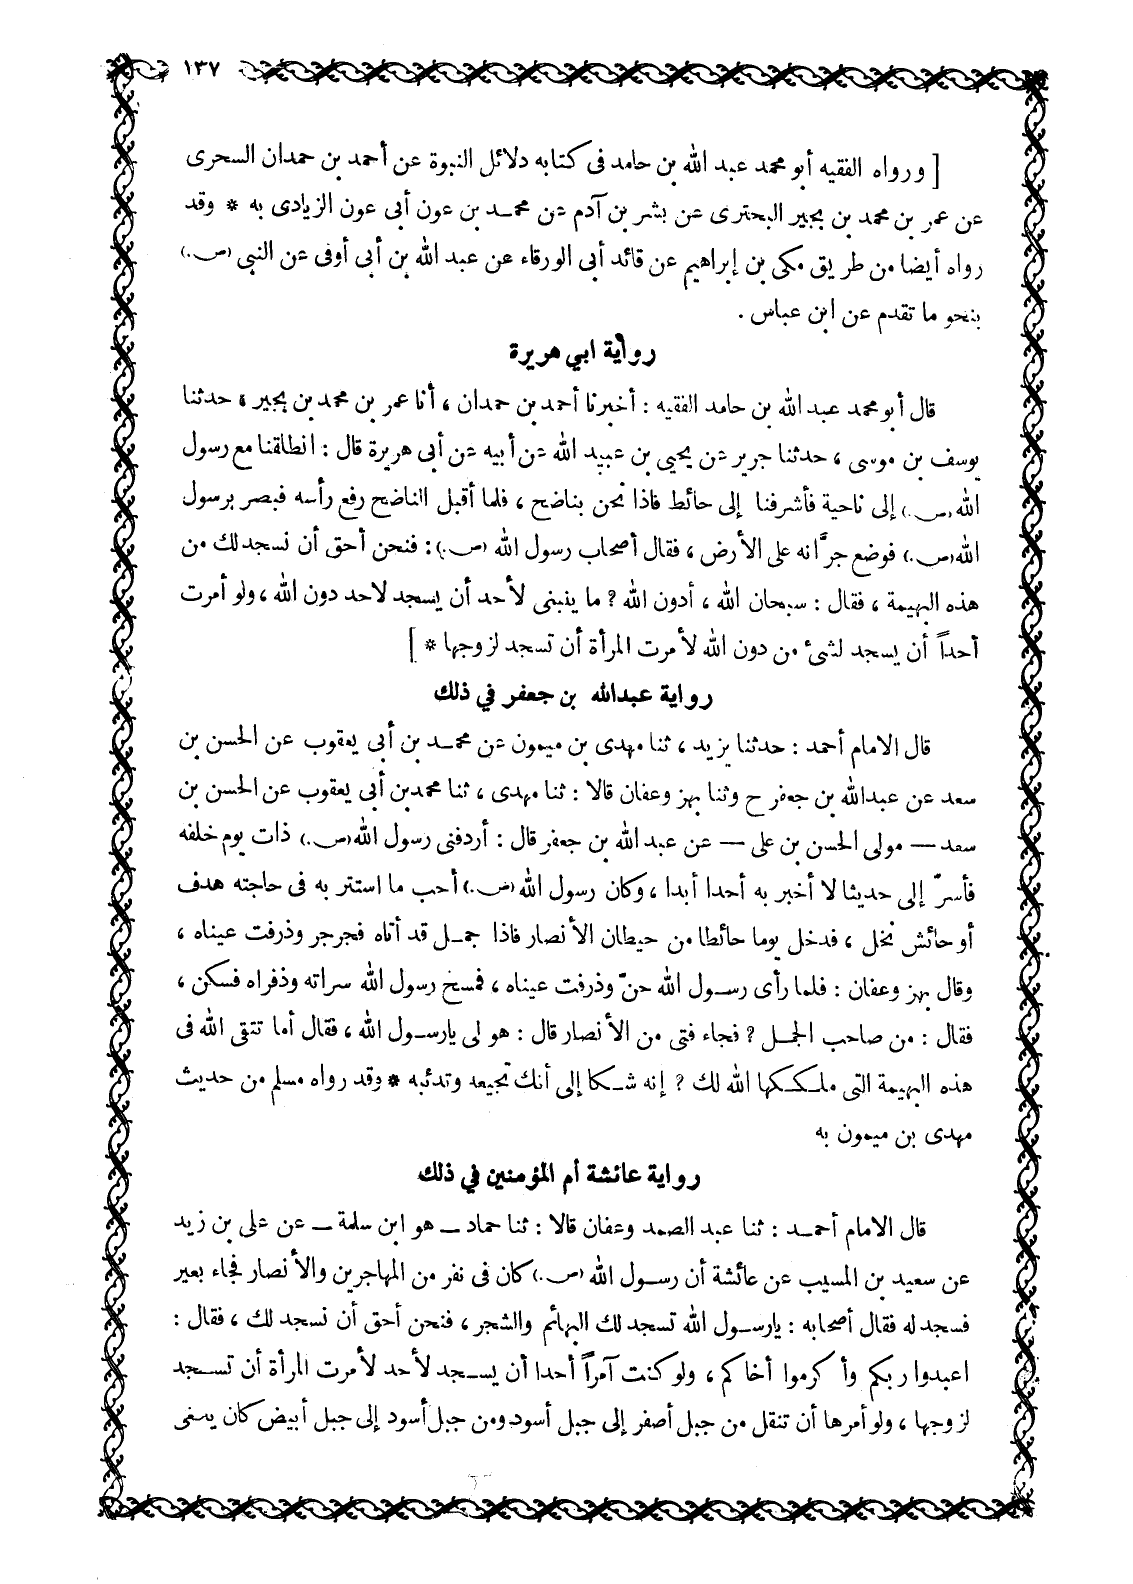 ١٣٧
[ ورواه الفقيه أبو محمد عبد الله بن حامد فى كتابه دلائل النبوة عن أحمد بن حمدان السحرى
عن عمر بن محمد بن بجير البحترى عن بشر بن آدم عن محمـد بن عون أبى عون الزيادى به * وقد
رواه أيضا من طريق مكى بن إبراهيم عن قائد أبى الورقاء عن عبد الله بن أبى أوفى عن النبى (ص.)
بنحو ما تقدم عن ابن عباس .
رواية ابي هريرة
قال أبو محمد عبد الله بن حامد الفقيه : أخبرنا أحمد بن حمدان ، أنا عمر بن محمد بن بجير ، حدثنا
يوسف بن موسى ، حدثنا جرير عن يحيى بن عبيد الله عن أبيه عن أبى هريرة قال : انطلقنا مع رسول
الله (ص.) إلى ناحية فأشرفنا إلى حائط فاذا نحن بناضح ، فلما أقبل الناضح رفع رأسه فبصر برسول
الله (ص.) فوضع جرَّانه على الأرض ، فقال أصحاب رسول الله (ص.) : فنحن أحق أن نسجد لك من
هذه البهيمة ، فقال : سبحان الله ، أدون الله ? ما ينبغى لأحد أن يسجد لاحد دون الله ، ولو أمرت
أحداً أن يسجد لشىء من دون الله لأمرت المرأة أن تسجد لزوجها * ]
رواية عبدالله بن جعفر في ذلك
قال الامام أحمد : حدثنا يزيد ، ثنا مهدى بن ميمون عن محمـد بن أبى يعقوب عن الحسن بن
سعد عن عبدالله بن جعفر ح وثنا بهز وعفان قالا : ثنا مهدى ، ثنا محمدبن أبى يعقوب عن الحسن بن
سعد — مولى الحسن بن على — عن عبد الله بن جعفر قال : أردفنى رسول الله (ص.) ذات يوم خلفه
فأسرّ إلى حديثا لا أخبر به أحدا أبدا ، وكان رسول الله (ص.) أحب ما استتر به فى حاجته هدف
أو حائش نخل ، فدخل يوما حائطا من حيطان الأنصار فاذا جمـل قد أتاه فجرجر وذرفت عيناه ،
وقال بهز وعفان : فلما رأى رسـول الله حنّ وذرفت عيناه ، فمسح رسول الله سراته وذفراه فسكن ،
فقال : من صاحب الجمـل ? فجاء فتى من الأنصار قال : هو لى يارسـول الله ، فقال أما تتقى الله فى
هذه البهيمة التى ملـكـكها الله لك ? إنه شـكا إلى أنك تجيعه وتدئبه * وقد رواه مسلم من حديث
مهدى بن ميمون به
رواية عائشة أم المؤمنين في ذلك
قال الامام أحمـد : ثنا عبد الصمد وعفان قالا : ثنا حماد ـ هو ابن سلمة ـ عن على بن زيد
عن سعيد بن المسيب عن عائشة أن رسـول الله (ص.) كان فى نفر من المهاجرين والأنصار فجاء بعير
فسجد له فقال أصحابه : يارسـول الله تسجد لك البهائم والشجر ، فنحن أحق أن نسجد لك ، فقال :
اعبدوا ربكم وأكرموا أخاكم ، ولو كنت آمراً أحدا أن يسـجد لأحد لأمرت المرأة أن تسـجد
لزوجها ، ولو أمرها أن تنقل من جبل أصفر إلى جبل أسود ومن جبل أسود إلى جبل أبيض كان ينبغى